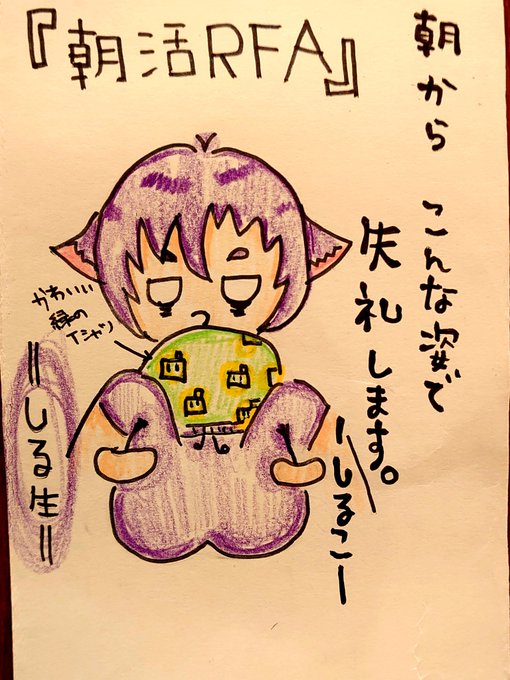 『朝活RFA』
朝から こんな姿で
失礼します。
ーしるこー
かわいい
緑の
Tシャツ
＝しる生＝